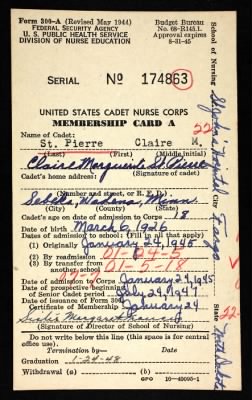 Form 300-A (Revised Mar 1944)
FEDERAL SECURITY AGENCY
U. S. PUBLIC HEALTH SERVICE
DIVISION OF NURSE EDUCATION
Budget Bureau
No. 68-R145.1.
Approval expires
8-31-45
SERIAL No 174863
UNITED STATES CADET NURSE CORPS
MEMBERSHIP CARD A
Name of Cadet:
St. Pierre Claire M.
(Last) (First) (Middle initial)
Claire Marguerite St. Pierre
Cadet's home address: (Signature of cadet)
Sebeka, Wadena, Minn.
(Number and street, or R. F. D.)
(City) (County) (State)
Cadet's age on date of admission to Corps 18
Date of birth March 6, 1926
Dates of admission to school: (Fill in all that apply)
(1) Originally January 24, 1945
(2) By readmission 01-24-5
(3) By transfer from another school 01-5-18
Date of admission to Corps January 24, 1945
Date of prospective beginning of Senior Cadet period July 24, 1947
Date of issuance of Form 300, Certificate of Membership January 24
(Signature of Director of School of Nursing)
Do not write below this line (this space for central office use).
Termination by— Date
Graduation 1-24-48
Withdrawal (a) (b)
GPO 16-40095-1
School of Nursing
City Fargo
State
22